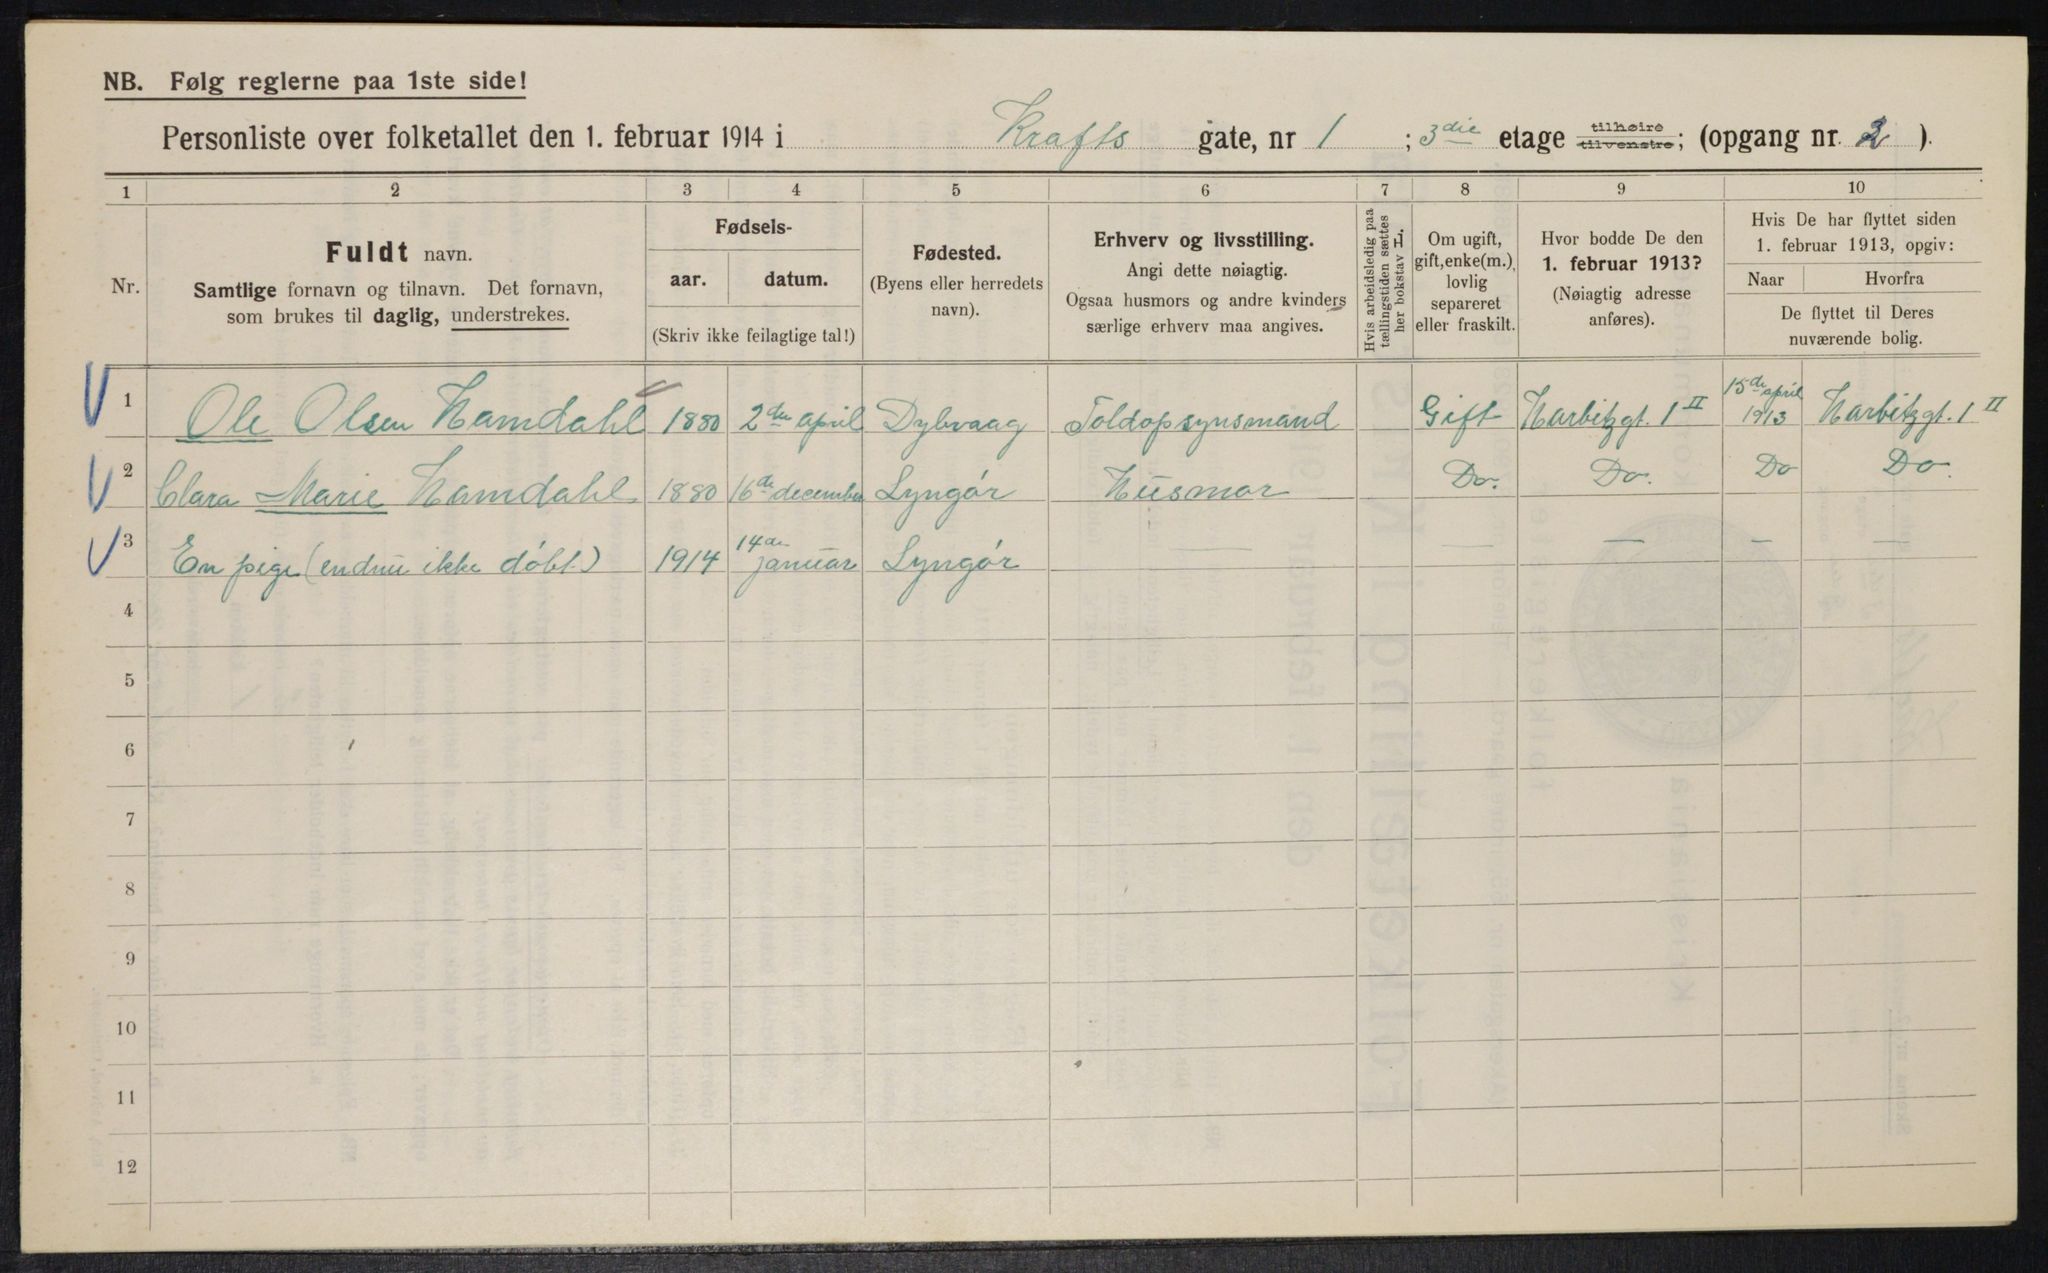 NB. Følg reglerne paa 1ste side!
Personliste over folketallet den 1. februar 1914 i Krafts gate, nr 1 ; 3die etage tilhøire tilvenstre; (opgang nr. 2 ).
1 2 3 4 5 6 7 8 9 10
Nr.
Fuldt navn.
Samtlige fornavn og tilnavn. Det fornavn,
som brukes til daglig, understrekes.
Fødsels-
aar. datum.
(Skriv ikke feilagtige tal!)
Fødested.
(Byens eller herredets
navn).
Erhverv og livsstilling.
Angi dette nøiagtig.
Ogsaa husmors og andre kvinders
særlige erhverv maa angives.
Hvis arbeidsledig paa
tællingstiden sættes
her bokstav H.
Om ugift,
gift, enke(m.),
lovlig
separeret
eller fraskilt.
Hvor bodde De den
1. februar 1913?
(Nøiagtig adresse
anføres).
Hvis De har flyttet siden
1. februar 1913, opgiv:
Naar Hvorfra
De flyttet til Deres
nuværende bolig.
1 Ole Olsen Hamdahl 1880 2den april Dybvaag Toldopsynsmand Gift Harbitzgt. 1 II 15de april 1913 Harbitzgt. 1 II
2 Clara Marie Hamdahl 1880 16de december Lyngør Husmor Do. Do. Do Do.
3 En pige (endnu ikke döbt.) 1914 14de januar Lyngør — — — — —
4
5
6
7
8
9
10
11
12